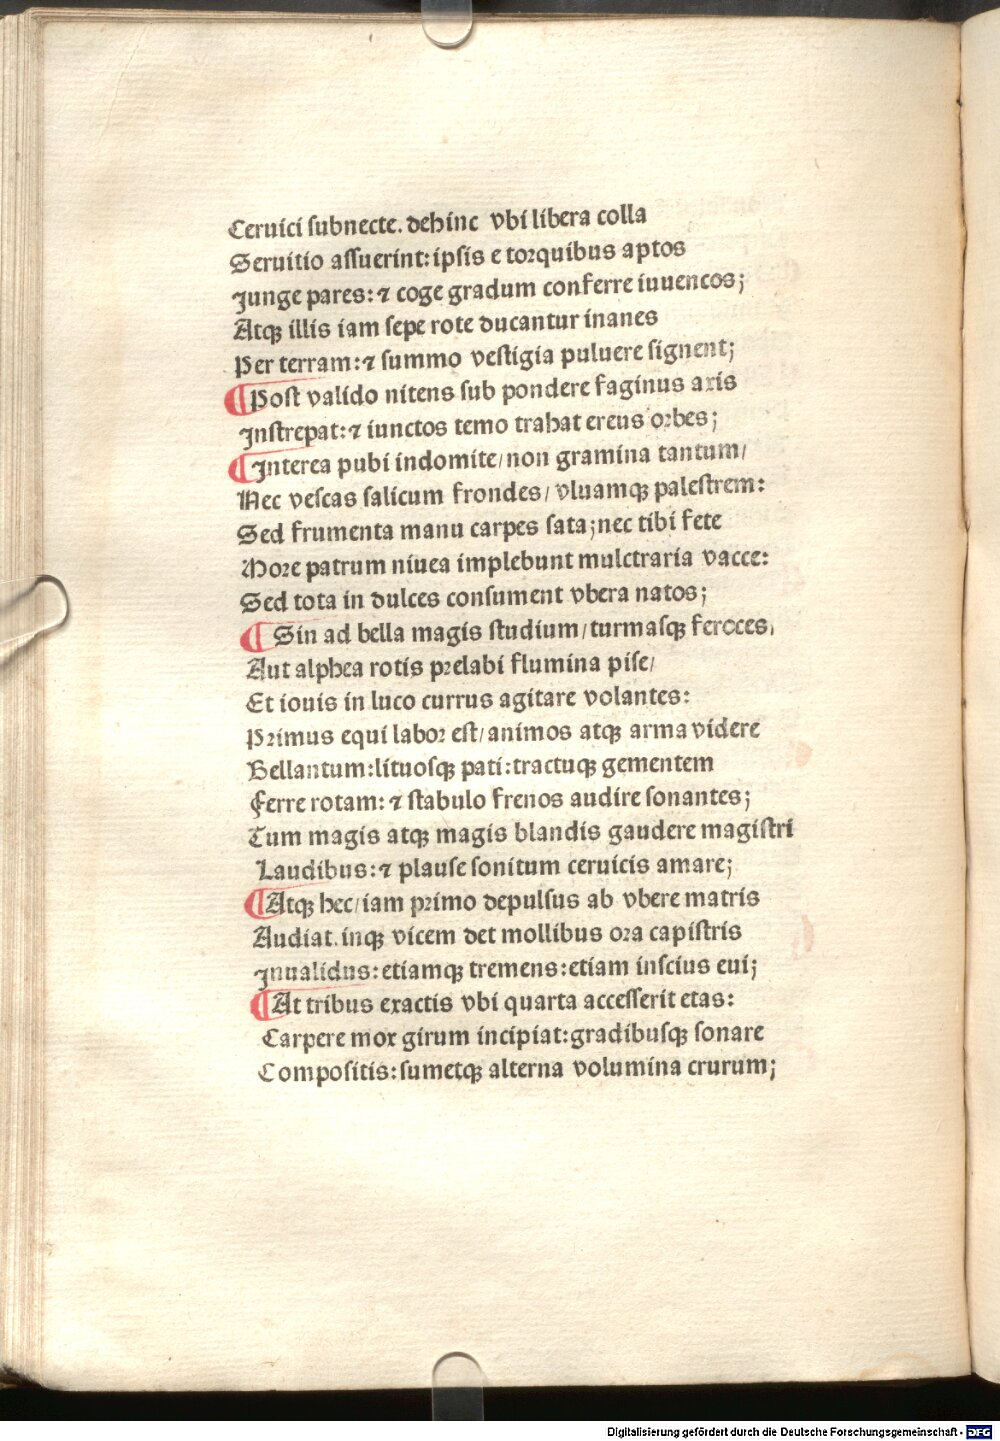 Ceruici subnecte. dehinc vbi libera colla
Seruitio assuerint: ipsis e torquibus aptos
Junge pares: ⁊ coge gradum conferre iuuencos;
Atqꝫ illis iam sepe rote ducantur inanes
Per terram: ⁊ summo vestigia puluere signent;
¶ Post valido nitens sub pondere faginus axis
Instrepat: ⁊ iunctos temo trahat ereus orbes;
¶ Interea pubi indomite/ non gramina tantum/
Nec vescas salicum frondes/ vluamqꝫ palestrem:
Sed frumenta manu carpes sata; nec tibi fete
More patrum niuea implebunt mulctraria vacce:
Sed tota in dulces consument vbera natos;
¶ Sin ad bella magis studium/ turmasqꝫ feroces,
Aut alphea rotis prelabi flumina pise/
Et iouis in luco currus agitare volantes:
Primus equi labor est/ animos atqꝫ arma videre
Bellantum: lituosqꝫ pati: tractuqꝫ gementem
Ferre rotam: ⁊ stabulo frenos audire sonantes;
Tum magis atqꝫ magis blandis gaudere magistri
Laudibus: ⁊ plause sonitum ceruicis amare;
¶ Atqꝫ hec/ iam primo depulsus ab vbere matris
Audiat. inqꝫ vicem det mollibus ora capistris
Inualidus: etiamqꝫ tremens: etiam inscius eui;
¶ At tribus exactis vbi quarta accesserit etas:
Carpere mox girum incipiat: gradibusqꝫ sonare
Compositis: sumetqꝫ alterna volumina crurum;
Digitalisierung gefördert durch die Deutsche Forschungsgemeinschaft - DFG